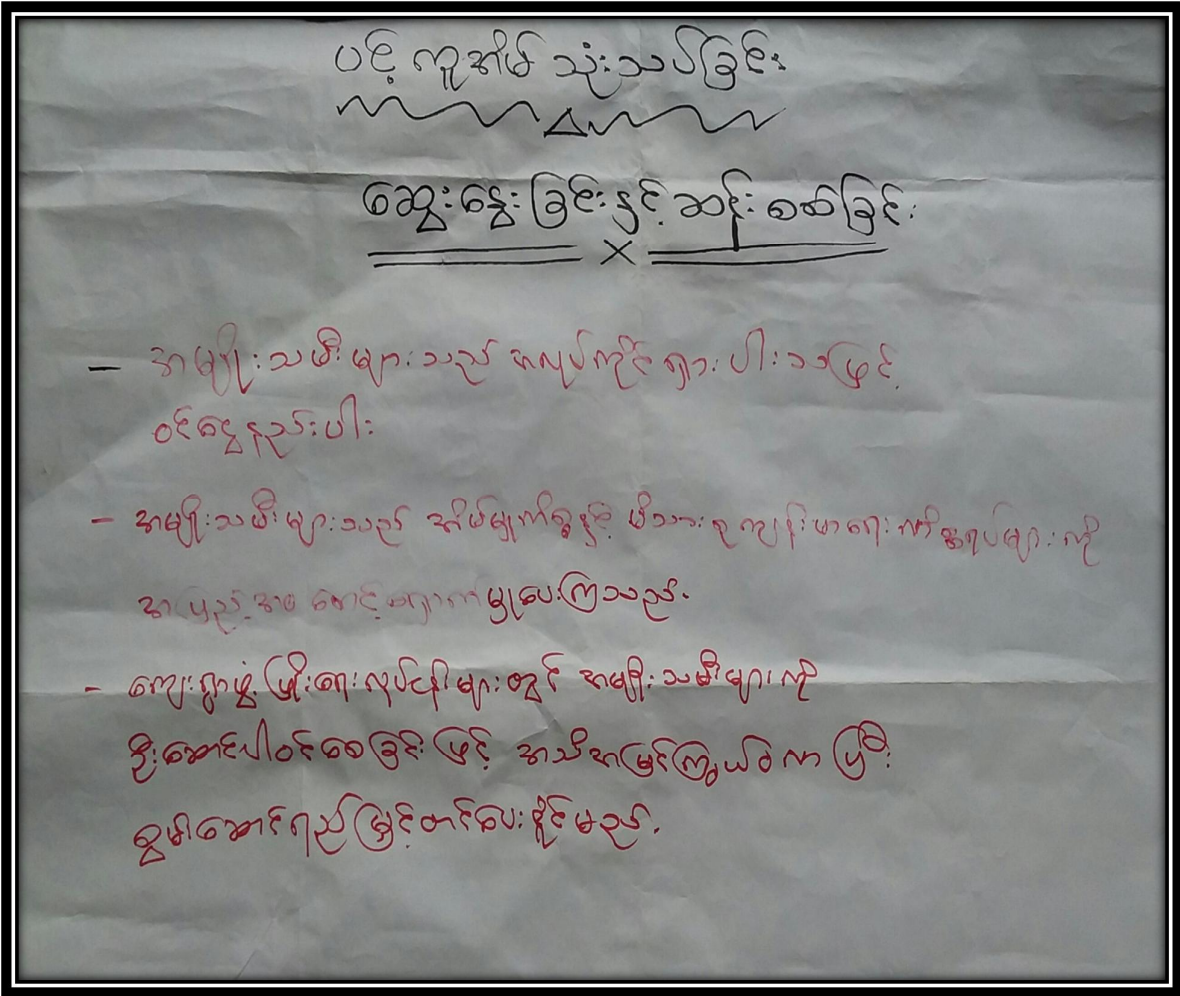 ပင့်ကူအိမ် သုံးသပ်ခြင်း
ဆွေးနွေးခြင်းနှင့် ဆန်းစစ်ခြင်း
- အမျိုးသမီးများသည် အလုပ်ကိုင်ရှားပါးသဖြင့်
ဝင်ငွေနည်းပါး
- အမျိုးသမီးများသည် အိမ်မှုကိစ္စနှင့် မိသားစုကျန်းမာရေးကိစ္စရပ်များကို
အပြည့်အဝ စောင့်ရှောက်မှုပေးကြသည်.
- ကျေးရွာဖွံ့ဖြိုးရေးလုပ်ငန်းများတွင် အမျိုးသမီးများကို
ဦးဆောင်ပါဝင်စေခြင်းဖြင့် အသိအမြင်ကြွယ်ဝလာပြီး
စွမ်းဆောင်ရည်မြှင့်တင်ပေးနိုင်မည်.